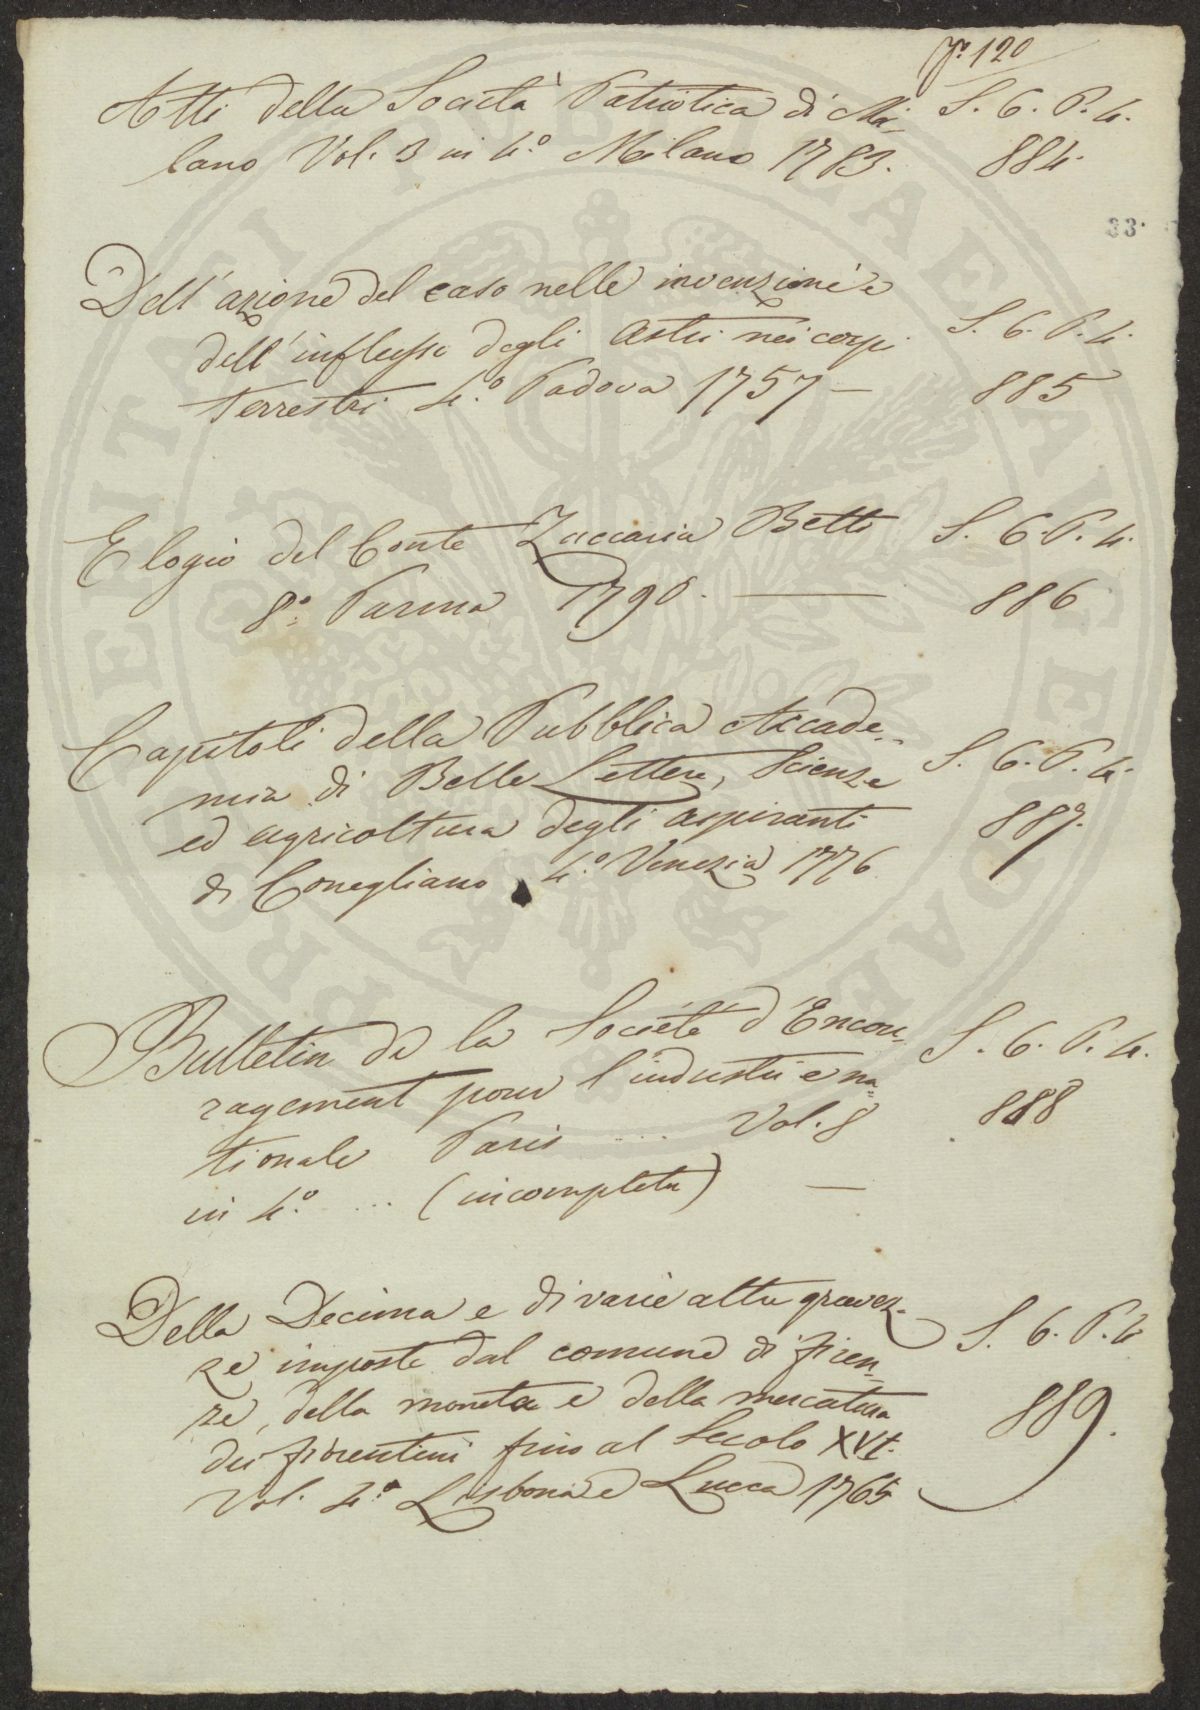 120
Atti della Società Patriotica di Mi- S. 6. P. 4.
lano Vol. 3 in 4.° Milano 1783. 884.
33.
Dell'azione del caso nelle invenzioni e
dell'influsso degli astri nei corpi S. 6. P. 4.
terrestri 4.° Padova 1757 — 885
Elogio del Conte Zaccaria Betti S. 6 P. 4.
8.° Parma 1790. — 886
Capitoli della Pubblica Accade-
mia di Belle Lettere, Scienze S. 6. P. 4.
ed agricoltura degli aspiranti 887.
di Conegliano 4.° Venezia 1776
Bulletin de la Société d'Encou- S. 6. P. 4.
ragement pour l'industrie na-
tionale Paris ... Vol. 8 888
in 4.° ... (incompleta) —
Della Decima e di varie altre gravez-
ze imposte dal comune di firen- S. 6. P. 4
ze, della moneta e della mercatura
dei fiorentini fino al Secolo XVI. 889.
Vol. 4.° Lisbona e Lucca 1765
PROSPERITATI PUBLICAE AUGENDAE